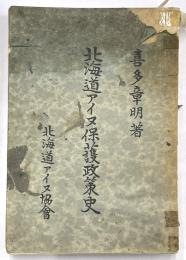 喜多章明著
北海道アイヌ保護政策史
北海道アイヌ協會